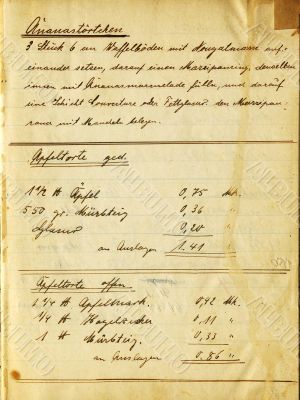 Ananastörtchen
3 Stück 6 cm Waffelböden mit Nougatmasse auf-
einander setzen, darauf einen Marzipanring, denselben
innen mit Ananasmarmelade füllen, und darauf
eine Schicht Couverture oder Fettglasur. den Marzipan-
rand mit Mandeln belegen.
Apfeltorte ged.
1 1/2 ℔ Äpfel 0,75 Mk.
550 gr. Mürbteig 0,36 "
Glasur 0,20 "
an Auslagen 1.41 "
Apfeltorte offen
1 1/4 ℔ Apfelmark. 0,42 Mk.
1/4 ℔ Hagelzucker 0,11 "
1 ℔ Mürbteig. 0,33 "
an Auslagen 0,86 "